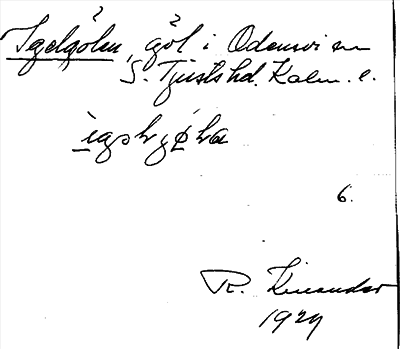 Igelgölen, göl i Odensvi sn
S. Tjusts hd. Kalm. l.
6.
R. Kinander
1929